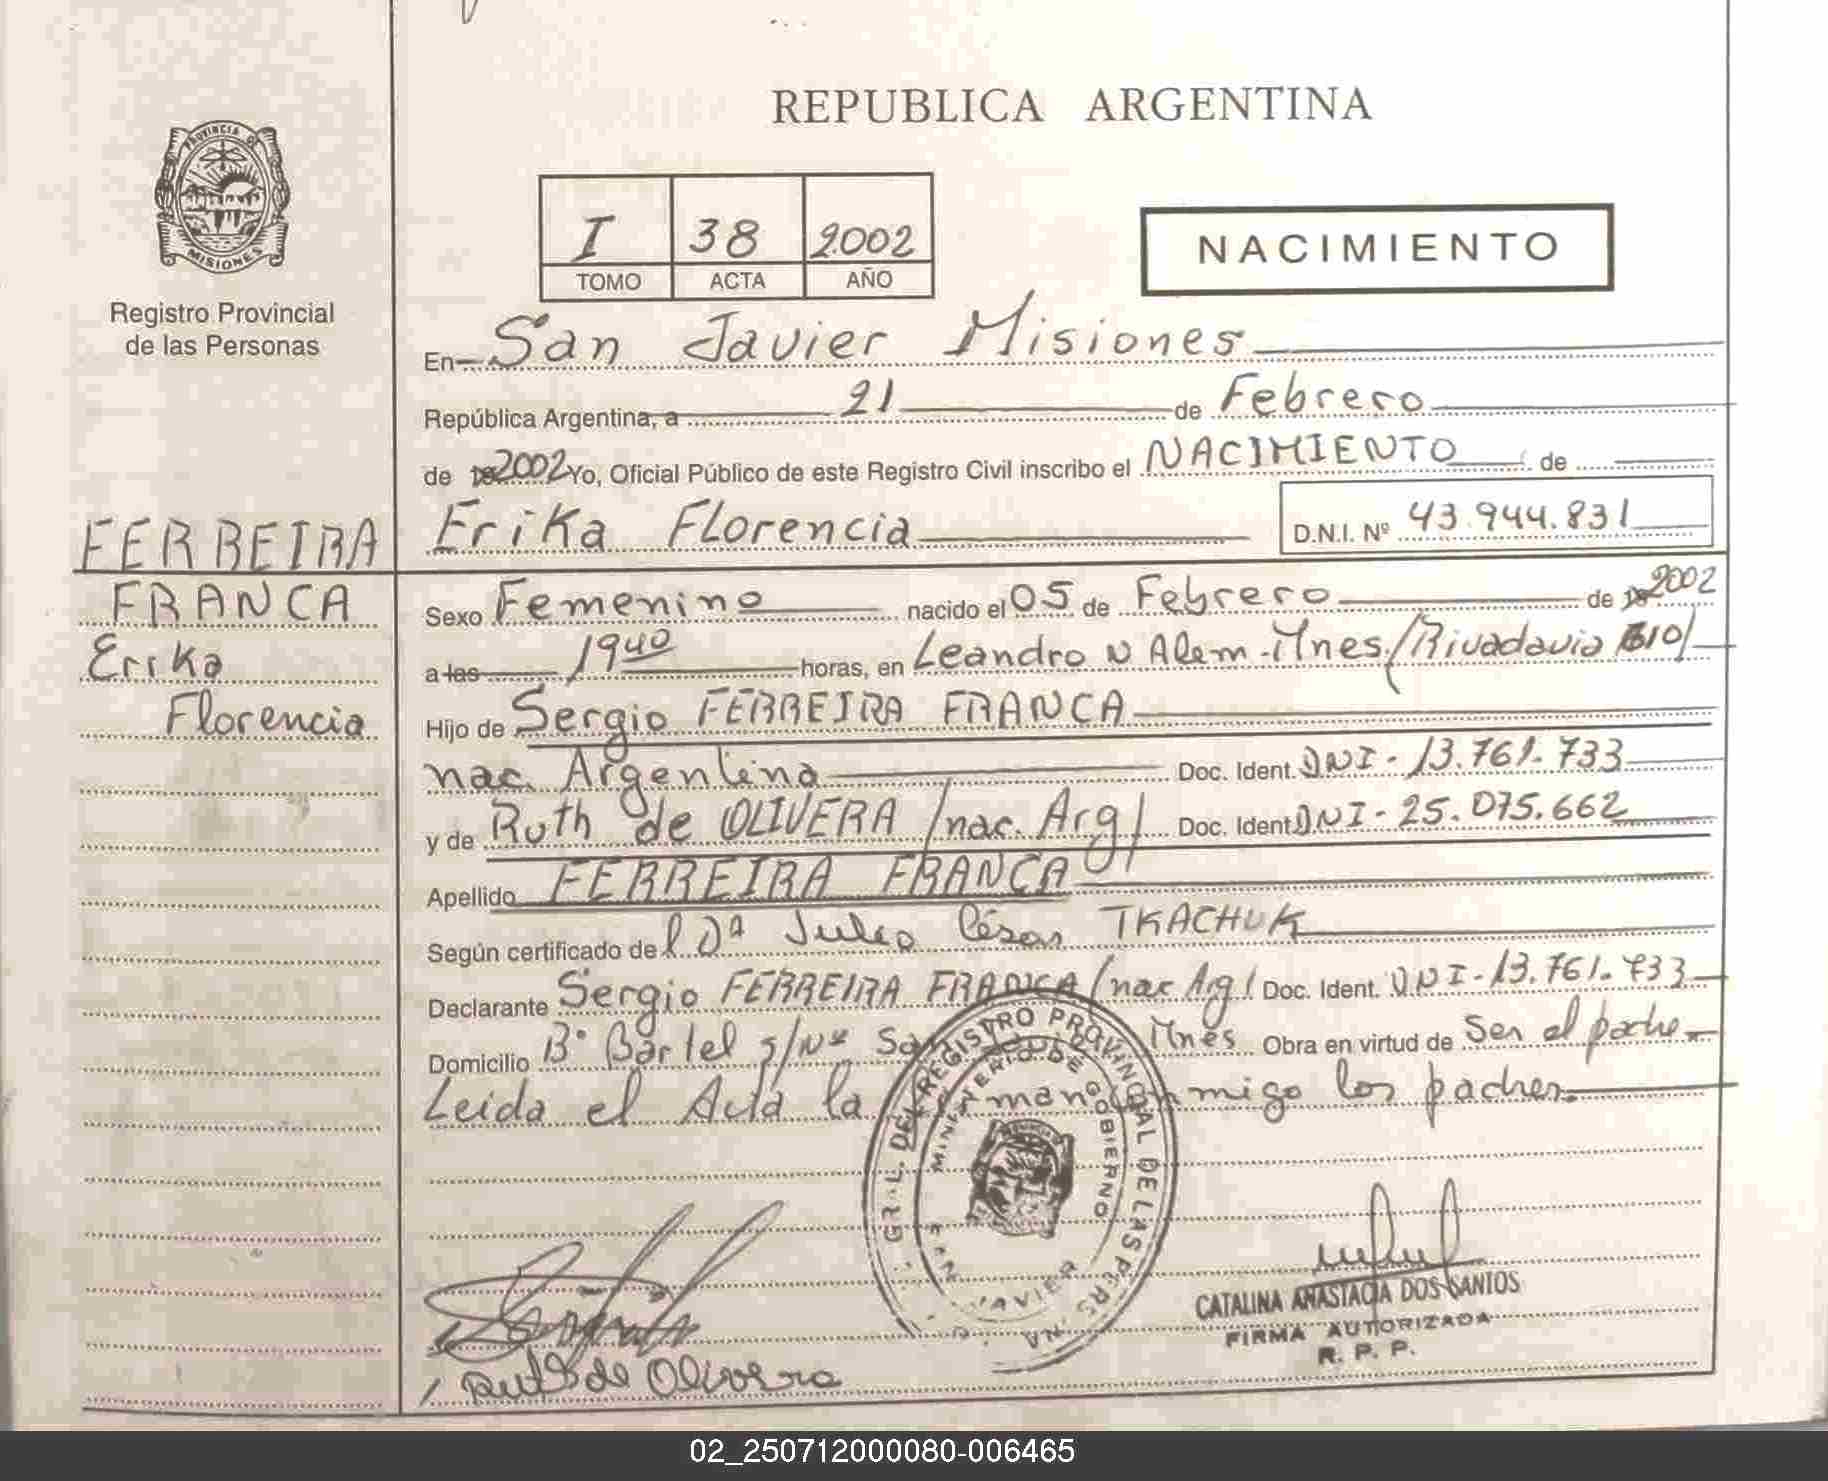 REPUBLICA ARGENTINA
PROVINCIA DE
MISIONES
Registro Provincial
de las Personas
I 38 2002
TOMO ACTA AÑO
NACIMIENTO
En San Javier Misiones
República Argentina, a 21 de Febrero
de 2002 Yo, Oficial Público de este Registro Civil inscribo el NACIMIENTO de
Erika Florencia D.N.I. Nº 43.944.831
FERREIRA
FRANCA
Erika
Florencia
Sexo Femenino nacido el 05 de Febrero de 2002
a las 19 40 horas, en Leandro N Alem-Mnes/Rivadavia 610/
Hijo de Sergio FERREIRA FRANCA
nac. Argentina Doc. Ident. DNI-13.761.733
y de Ruth de OLIVERA /nac. Arg/ Doc. Ident DNI-25.075.662
Apellido FERREIRA FRANCA
Según certificado de Julio César TKACHUK
Declarante Sergio FERREIRA FRANCA /nac Arg/ Doc. Ident. DNI-13.761.733
Domicilio Bº Bartel s/Nº Mnes Obra en virtud de Ser el padre
Leida el Acta la man migo los padres.
GRAL. DEL REGISTRO PROVINCIAL DE LAS PERS
MINISTERIO DE GOBIERNO
JAVIER
CATALINA ANASTACIA DOS SANTOS
FIRMA AUTORIZADA
R. P. P.
Ruth de Olivera
02_250712000080-006465